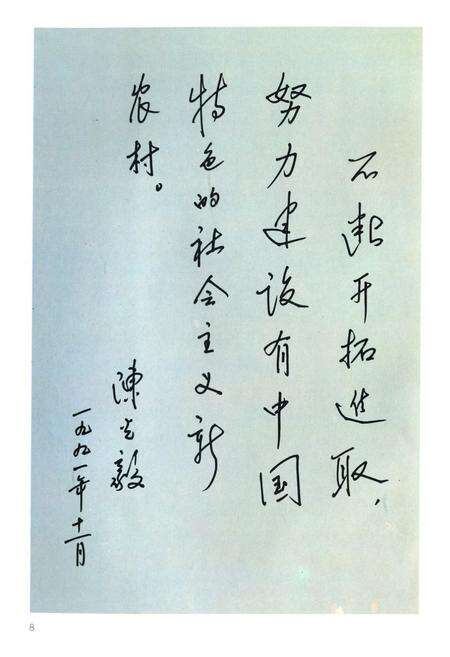 不断开拓进取，
努力建设有中国
特色的社会主义新
农村。
陳光毅
一九九一年十一月
8